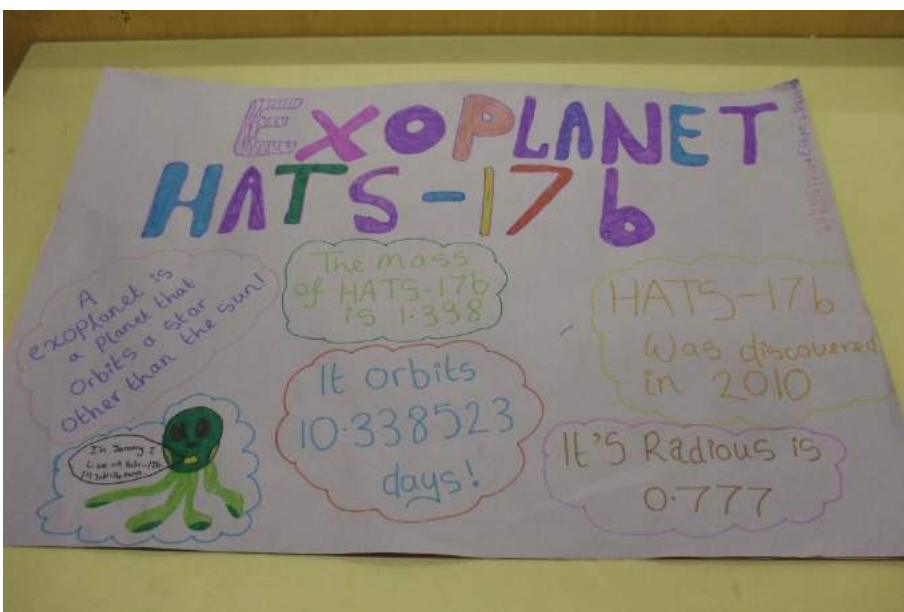 EXOPLANET
HATS-17b
A
exoplanet is
a planet that
orbits a star
other than the sun!
The mass
of HATS-17b
is 1.338
HATS-17b
Was discovered
in 2010
It orbits
10.338523
days!
It's Radious is
0.777
I'm Jammy I
Live on Hats-17b